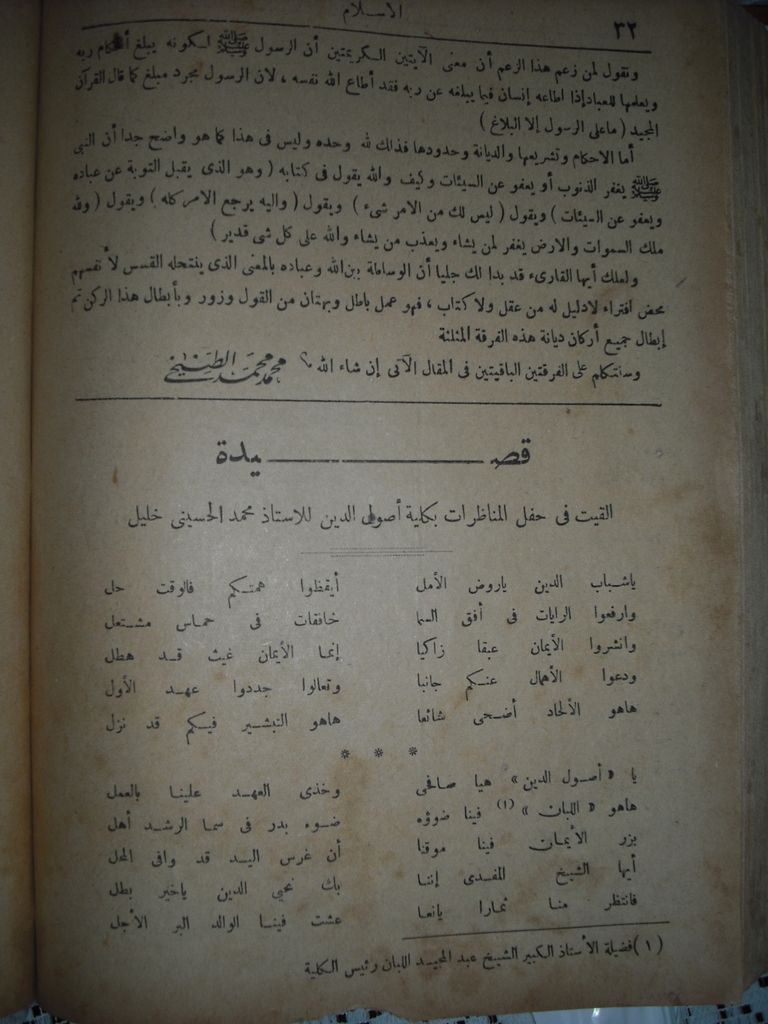 ٣٢
الاسلام
ونقول لمن زعم هذا الزعم أن معنى الآيتين الكريمتين أن الرسول ﷺ لكونه يبلغ أحكام ربه
ويعلمها للعباد إذا اطاعه إنسان فيما يبلغه عن ربه فقد أطاع الله نفسه ، لان الرسول مجرد مبلغ كما قال القرآن
المجيد ( ماعلى الرسول إلا البلاغ )
أما الاحكام وتشريعها والديانة وحدودها فذلك لله وحده وليس فى هذا كما هو واضح جدا أن النبى
ﷺ يغفر الذنوب أو يعفو عن السيئات وكيف والله يقول فى كتابه ( وهو الذى يقبل التوبة عن عباده
ويعفو عن السيئات ) ويقول ( ليس لك من الامر شىء ) ويقول ( واليه يرجع الامر كله ) ويقول ( ولله
ملك السموات والارض يغفر لمن يشاء ويعذب من يشاء والله على كل شى قدير )
ولعلك أيها القارىء قد بدا لك جليا أن الوساطة بين الله وعباده بالمعنى الذى ينتحله القسس لأنفسهم
محض افتراء لادليل له من عقل ولا كتاب ، فهو عمل باطل وبهتان من القول وزور وبأبطال هذا الركن تم
إبطال جميع أركان ديانة هذه الفرقة المثلثة
وسنتكلم على الفرقتين الباقيتين فى المقال الآتى إن شاء الله محمد محمد الطنيخى
قصــيدة
القيت فى حفل المناظرات بكلية أصول الدين للاستاذ محمد الحسينى خليل
ياشباب الدين ياروض الأمل أيقظوا همتكم فالوقت حل
وارفعوا الرايات فى أفق السما خافقات فى حماس مشتعل
وانشروا الأيمان عبقا زاكيا إنما الأيمان غيث قد هطل
ودعوا الأهمال عنكم جانبا وتعالوا جددوا عهد الأول
هاهو الألحاد أضحى شائعا هاهو التبشير فيكم قد نزل
* * *
يا « أصول الدين » هيا صافحى وخذى العهد علينا بالعمل
هاهو « اللبان » (١) فينا ضوؤه ضوء بدر فى سما الرشد أهل
بزر الأيمان فينا موقنا أن غرس اليد قد وافى المحل
أيها الشيخ المفدى إننا بك نحيى الدين ياخير بطل
فانتظر منا ثمارا يانعا عشت فينا الوالد البر الأجل
( ١ ) فضيلة الأستاذ الكبير الشيخ عبد المجيد اللبان رئيس الكلية